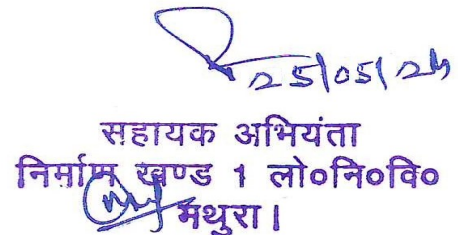 25/05/24
सहायक अभियंता
निर्माण खण्ड 1 लो०नि०वि०
मथुरा।